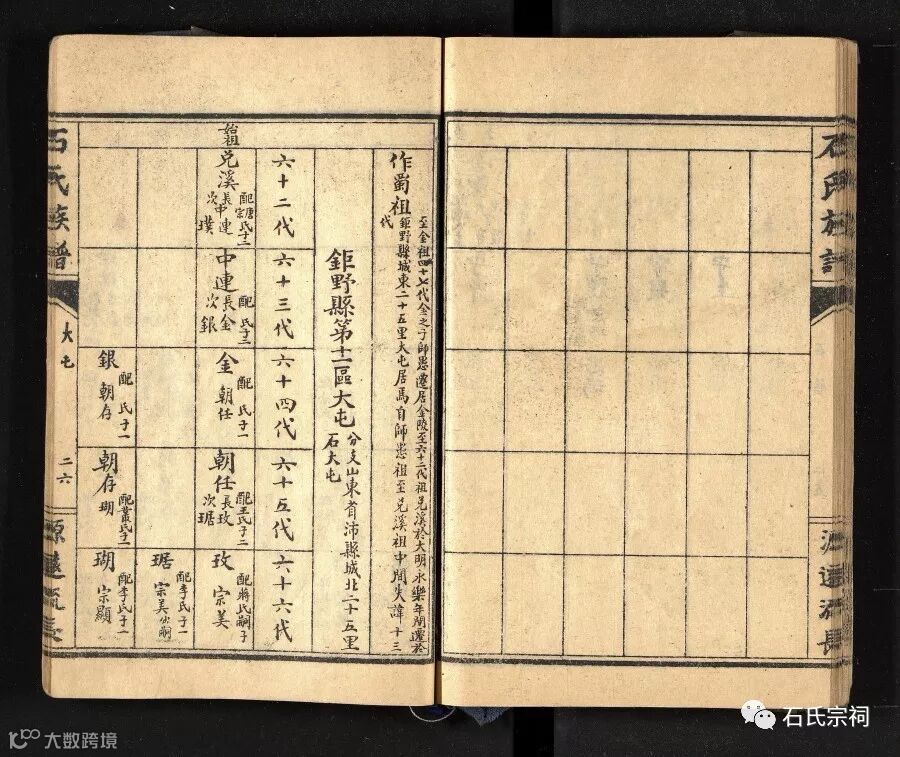 石氏族譜
源遠流長
作蜀祖
至金祖四十七代金之子師愚遷居金陵至六十二代祖兌溪於大明永樂年間遷於
鉅野縣城東二十五里大屯居焉自師愚祖至兌溪祖中間失諱十三
代
鉅野縣第十二區大屯
分支山東省沛縣城北二十五里
石大屯
六十二代
六十三代
六十四代
六十五代
六十六代
始祖
兌溪
配唐氏子二
長中連
次宗璞
中連
配 氏子二
長金
次銀
金
配 氏子一
朝任
朝任
配王氏子二
長玫
次琚
玫
配蔣氏嗣子
宗美
琚
配李氏子一
宗美出嗣
銀
配 氏子一
朝存
朝存
配董氏子一
瑚
瑚
配李氏子一
宗顯
石氏族譜
大屯
二六
源遠流長
石氏宗祠
大数跨境